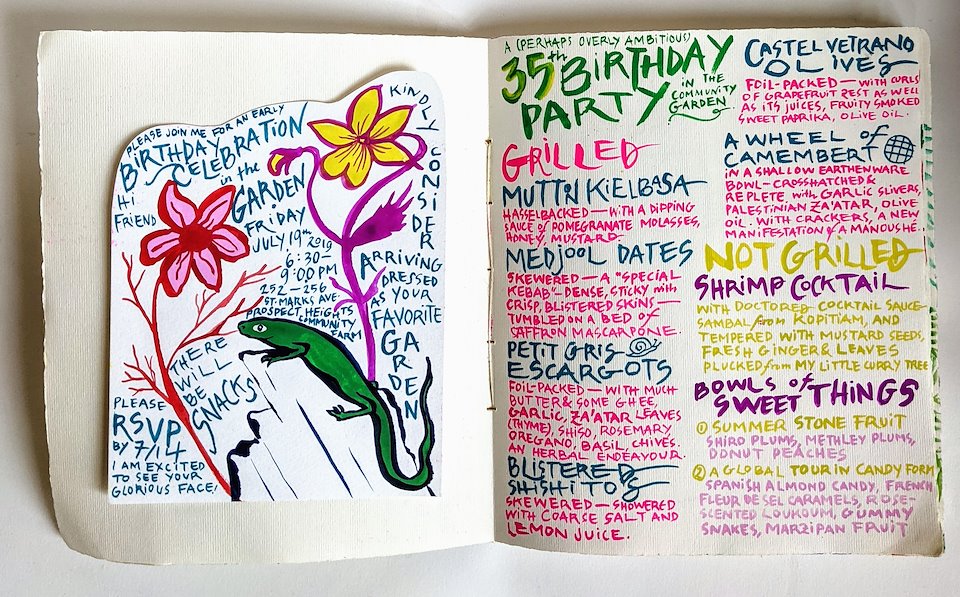 PLEASE JOIN ME FOR AN EARLY
BIRTHDAY
CELEBRATION
in the
GARDEN
HI
FRIEND
FRIDAY
JULY 19th 2019
6:30–
9:00 PM
252–256
ST. MARKS AVE.
PROSPECT HEIGHTS
COMMUNITY
FARM
KINDLY CONSIDER
ARRIVING
DRESSED
AS YOUR
FAVORITE
GARDEN
THERE
WILL
BE
SNACKS
PLEASE
RSVP
BY 7/14
I AM EXCITED
TO SEE YOUR
GLORIOUS FACE!
A (PERHAPS OVERLY AMBITIOUS)
35th BIRTHDAY
PARTY
IN THE
COMMUNITY
GARDEN
GRILLED
MUTTN KIELBASA
HASSELBACKED—WITH A DIPPING
SAUCE OF POMEGRANATE MOLASSES,
HONEY, MUSTARD.
MEDJOOL DATES
SKEWERED—A "SPECIAL
KEBAB"–DENSE, STICKY with
CRISP, BLISTERED SKINS—
TUMBLED ON A BED OF
SAFFRON MASCARPONE.
PETIT GRIS
ESCARGOTS
FOIL-PACKED—WITH MUCH
BUTTER & SOME GHEE,
GARLIC, ZA'ATAR LEAVES
(THYME), SHISO, ROSEMARY,
OREGANO, BASIL CHIVES.
AN HERBAL ENDEAVOUR.
BLISTERED
SHISHITOS
SKEWERED—SHOWERED
WITH COARSE SALT AND
LEMON JUICE.
CASTELVETRANO
OLIVES
FOIL-PACKED—WITH CURLS
OF GRAPEFRUIT ZEST AS WELL
AS ITS JUICES, FRUITY SMOKED
SWEET PAPRIKA, OLIVE OIL.
A WHEEL of
CAMEMBERT
IN A SHALLOW EARTHENWARE
BOWL–CROSSHATCHED &
REPLETE with GARLIC SLIVERS,
PALESTINIAN ZA'ATAR, OLIVE
OIL. WITH CRACKERS, 'A NEW
MANIFESTATION of A MANOUSHE.
NOT GRILLED
SHRIMP COCKTAIL
WITH DOCTORED COCKTAIL SAUCE–
SAMBAL from KOPITIAM, AND
TEMPERED WITH MUSTARD SEEDS,
FRESH GINGER & LEAVES
PLUCKED from MY LITTLE CURRY TREE
BOWLS of
SWEET THINGS
① SUMMER STONE FRUIT
SHIRO PLUMS, METHLEY PLUMS,
DONUT PEACHES
② A GLOBAL TOUR IN CANDY FORM
SPANISH ALMOND CANDY, FRENCH
FLEUR DE SEL CARAMELS, ROSE-
SCENTED LOUKOUM, GUMMY
SNAKES, MARZIPAN FRUIT